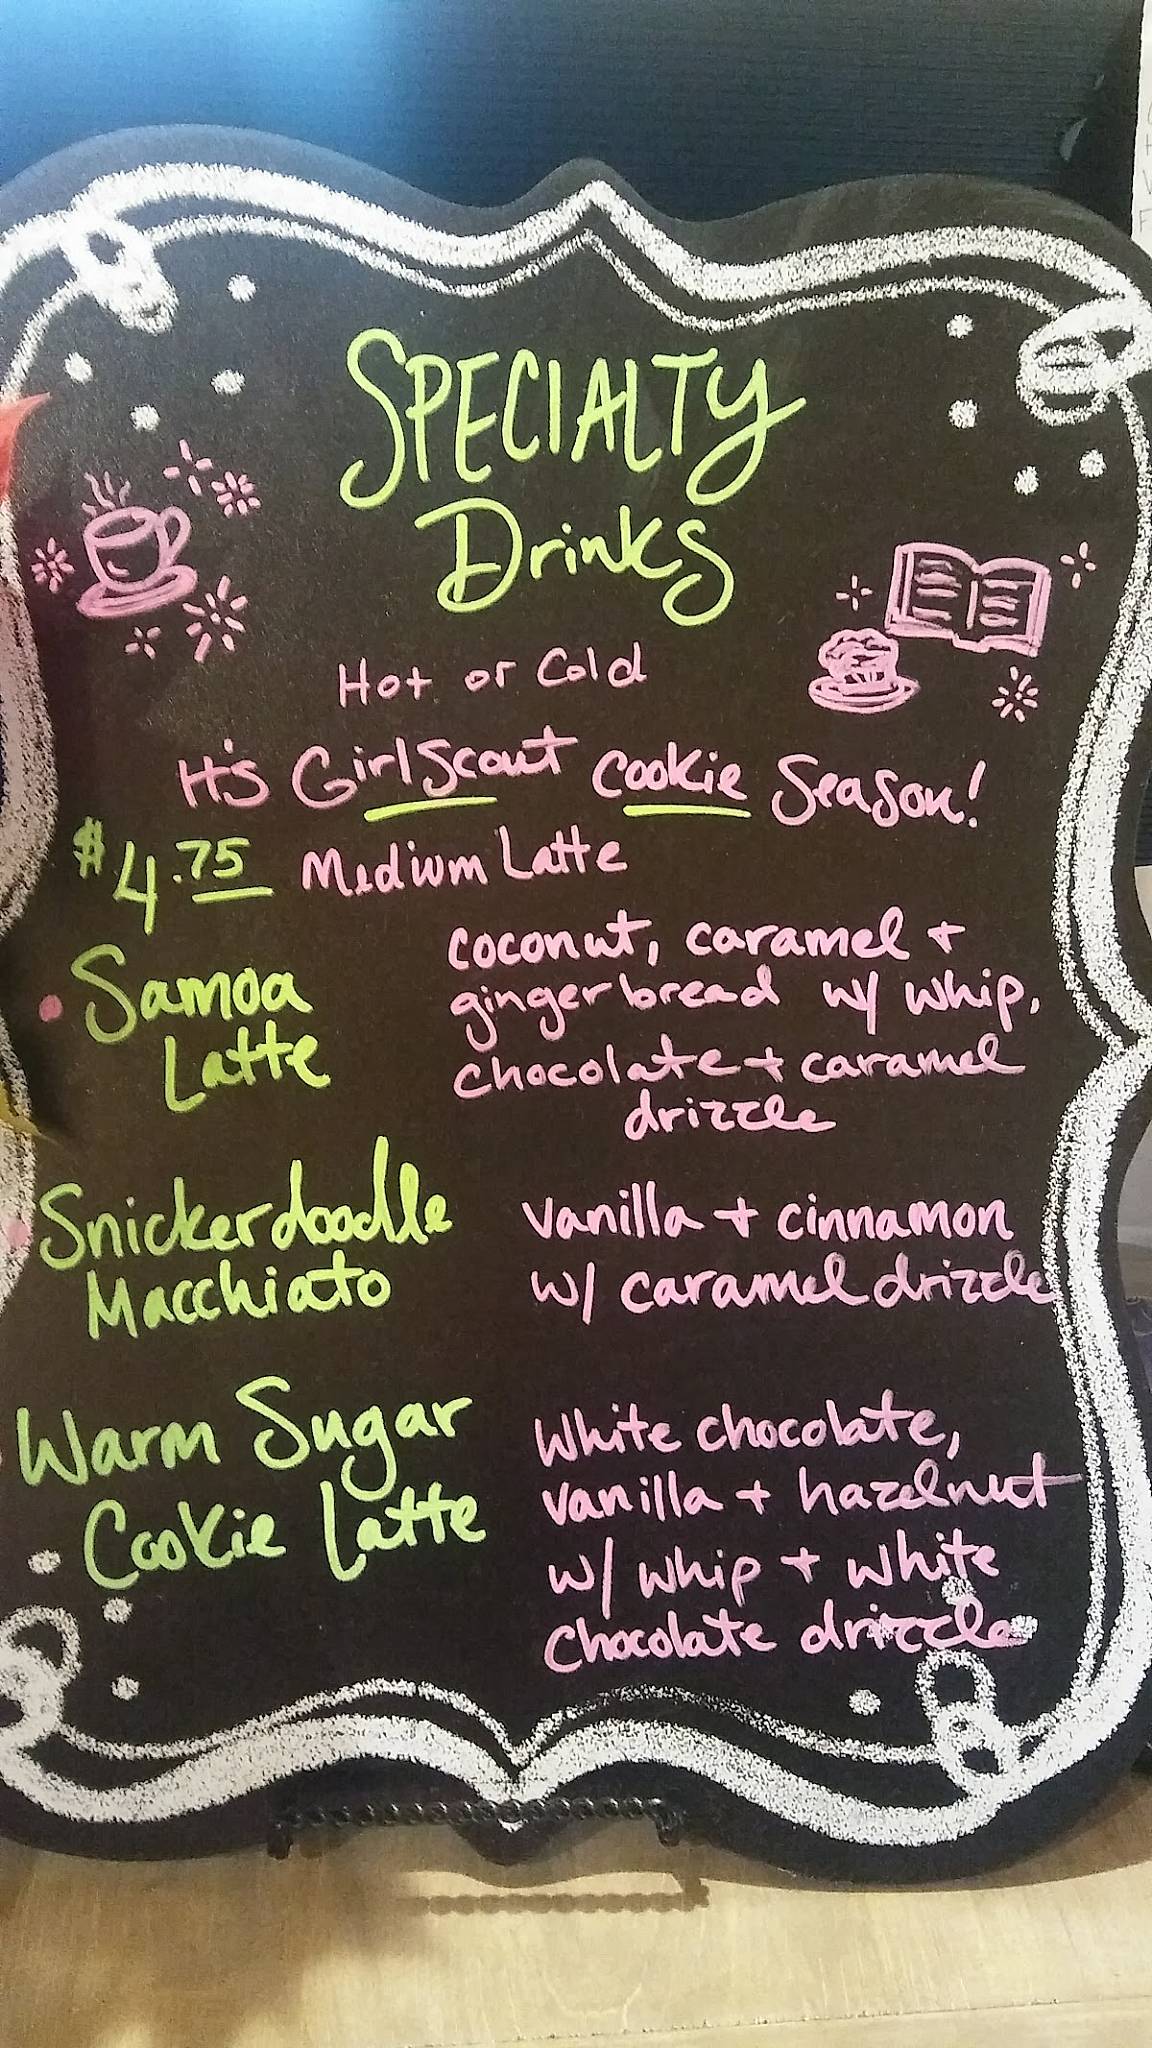 SPECIALTY
Drinks
Hot or Cold
It's Girl Scout Cookie Season!
$4.75 Medium Latte
Samoa
Latte
coconut, caramel +
gingerbread w/ whip,
chocolate + caramel
drizzle
Snickerdoodle
Macchiato
vanilla + cinnamon
w/ caramel drizzle
Warm Sugar
Cookie Latte
White chocolate,
vanilla + hazelnut
w/ whip + white
chocolate drizzle